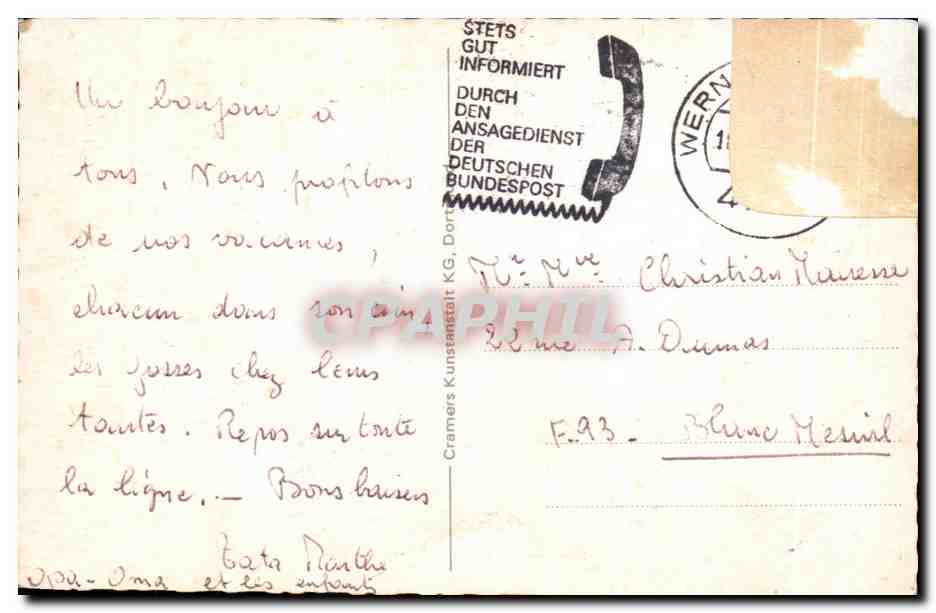 Un bonjour à
tous. Nous profitons
de nos vacances,
chacun dans son coin,
les gosses chez leurs
tantes. Repos sur toute
la ligne. — Bons baisers
Tata Marthe
Opa - Oma et les enfants
Cramers Kunstanstalt KG, Dort
STETS
GUT
INFORMIERT
DURCH
DEN
ANSAGEDIENST
DER
DEUTSCHEN
BUNDESPOST
WERN
Mr. Mme Christian Mairesse
22 rue A. Dumas
F.93 - Blanc Mesnil
CPAPHIL